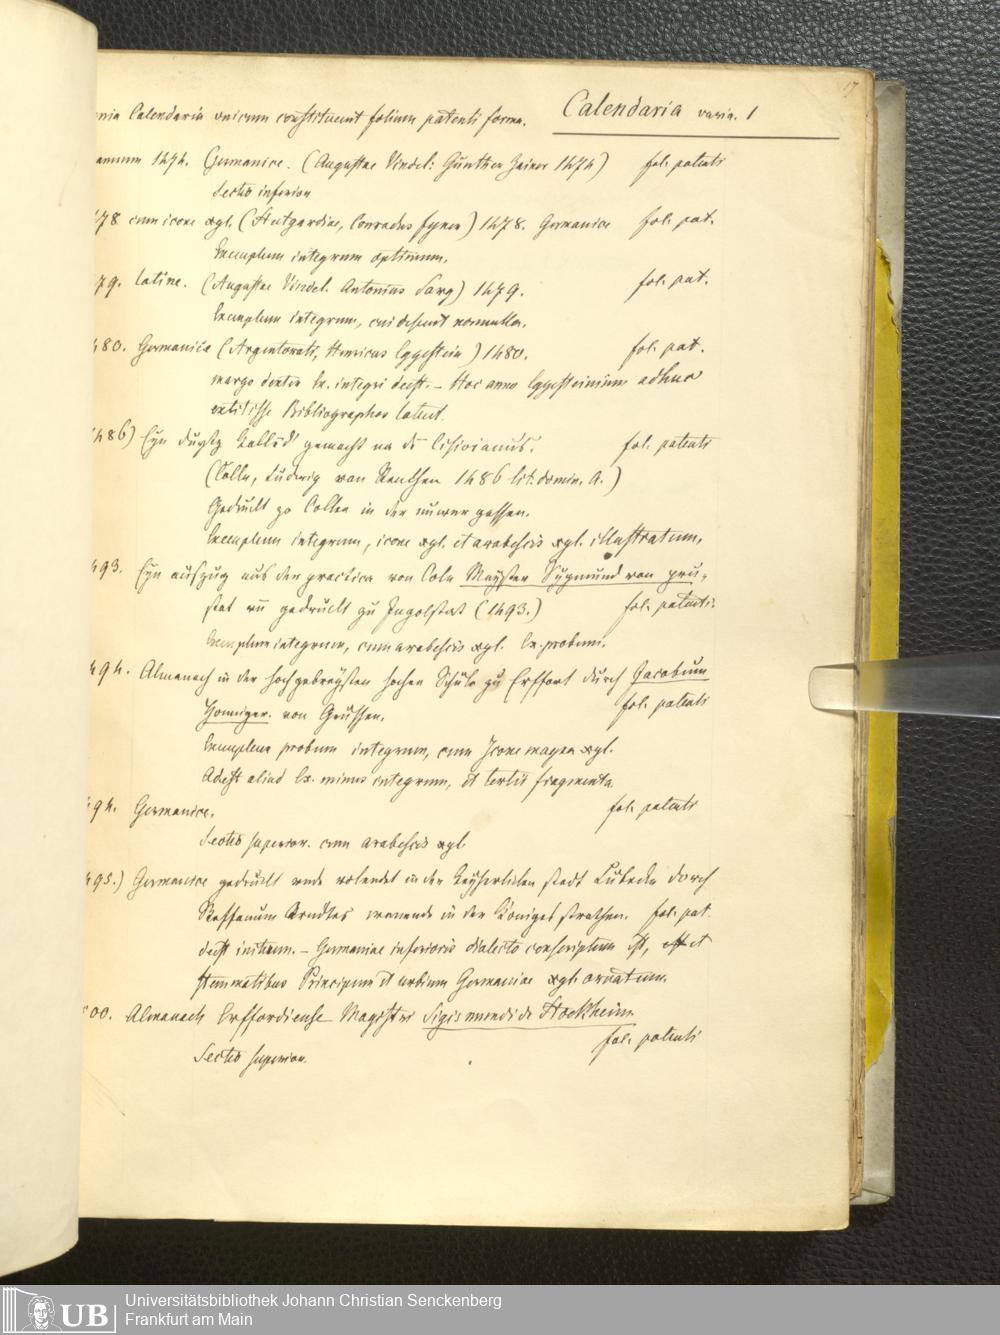 17
Calendaria varia. 1
Calendaria unicum constituunt folium patenti forma.
annum 1474. Germanice. (Augustae Vindel: Günther Zainer 1474) fol. patenti
Sectio inferior
78 cum icone xyl. (Stutgardiae, Conradus Fyner) 1478. Germanice fol. pat.
Exemplum integrum optimum.
79. latine. (Augustae Vindel. Antonius Sorg) 1479. fol. pat.
Exemplum integrum, cui desunt nonnulla.
480. Germanice (Argentorati, Henricus Eggestein) 1480. fol. pat.
margo dexter Ex. integri deest. – Hoc anno Eggesteinium adhuc
extitisse Bibliographos latent.
486) Eyn duytz kallend' gemacht na dē Cisioianus. fol. patenti
(Colln, Ludwig van Renthen 1486 lit: domin. A.)
Gedruckt zo Collen in der nuwer gassen.
Exemplum integrum, icone xyl. et arabescis xyl. illustratum.
493. Eyn auszug aus der practica von Coln Mayster Sygmund von pru-
stat vn gedruckt zu Ingolstat (1493.) fol. patenti.
Exemplum integrum, cum arabescis xyl. Ex. probum.
494. Almanach in der hochgebreysten hohen Schule zu Erffort durch Jacobum
Honniger. von Grussen. fol. patenti
Exemplum probum integrum, cum Icone magna xyl.
Adest aliud Ex. minus integrum, et tertii fragmenta
494. Germanice. fol. patenti
Sectio superior. cum arabescis xyl.
495.) Germanice gedruckt unde volendet in der keyserliken stadt Lubeck dorch
Steffanum Arndes wonende in der Koniges strathen. fol. pat.
deest initium. – Germaniae inferioris dialecto conscriptum est, et
stemmatibus Principum et urbium Germaniae xyl. ornatum.
500. Almanach Erffordiense Magistri Sigismundi de Stockheim
fol. patenti
Sectio superior.
UB
Universitätsbibliothek Johann Christian Senckenberg
Frankfurt am Main